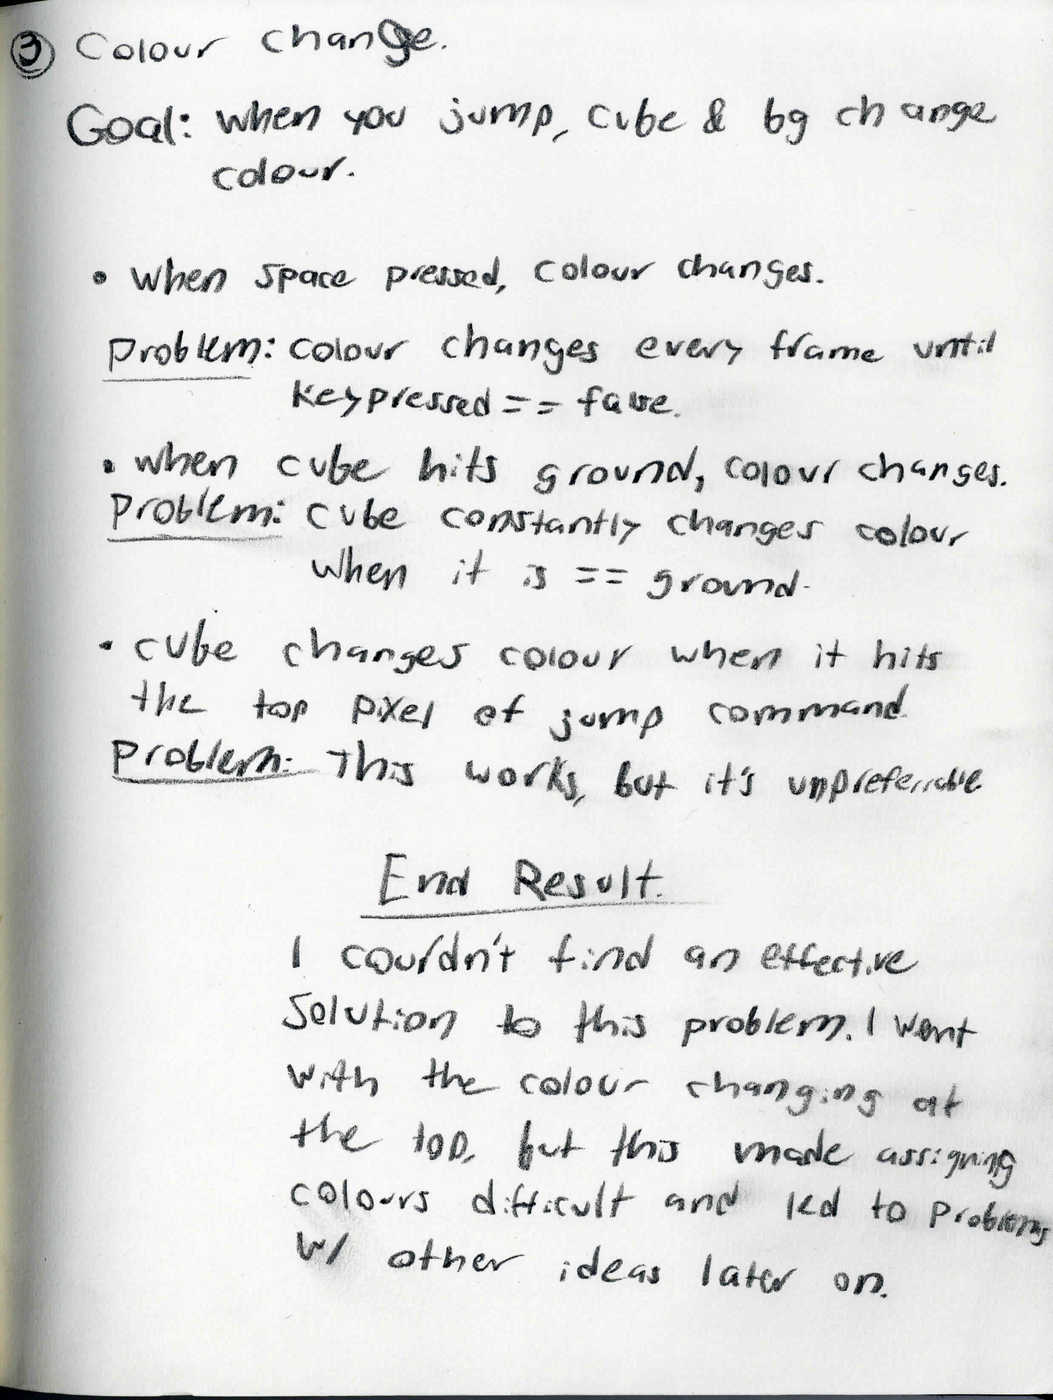 ③ Colour change.
Goal: When you jump, cube & bg change
colour.
• When space pressed, colour changes.
Problem: colour changes every frame until
keypressed == false.
• when cube hits ground, colour changes.
Problem: cube constantly changes colour
when it is == ground.
• cube changes colour when it hits
the top pixel of jump command.
Problem: This works, but it's unpreferrable.
End Result.
I couldn't find an effective
solution to this problem. I went
with the colour changing at
the top, but this made assigning
colours difficult and led to problems
w/ other ideas later on.